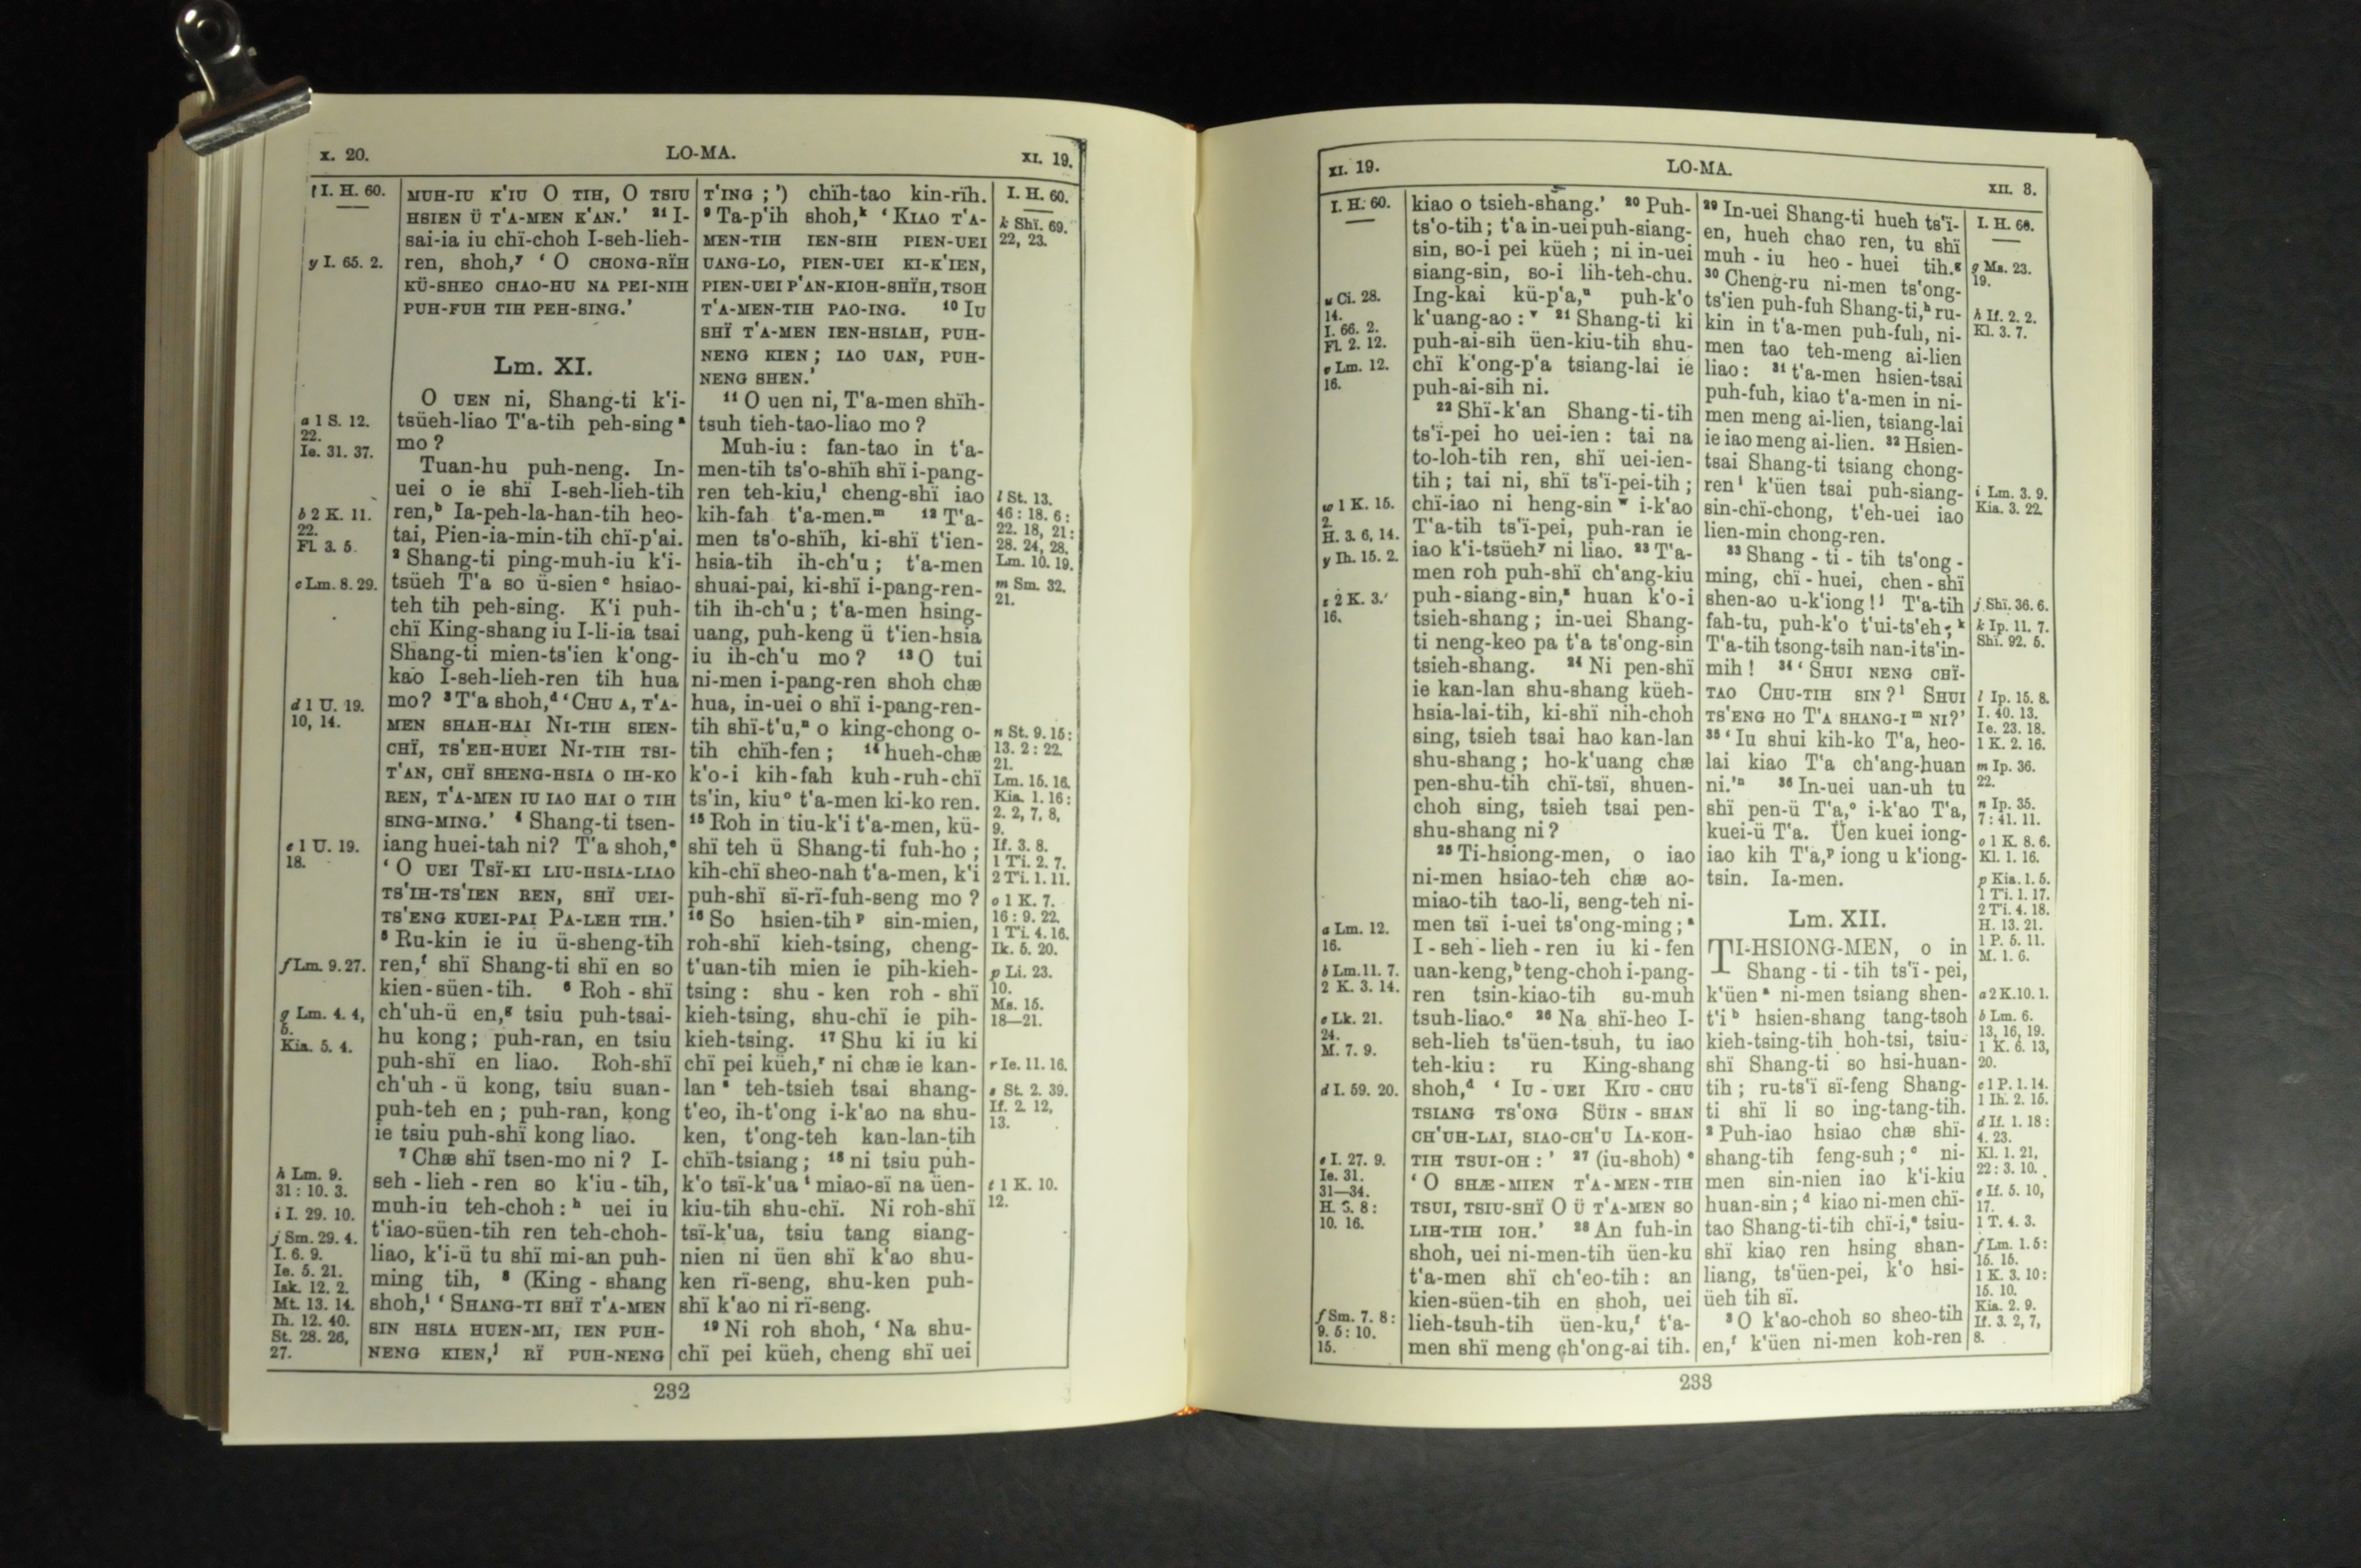 x. 20.
LO-MA.
XI. 19.
I. H. 60.
y I. 65. 2.
a 1 S. 12.
22.
Ie. 31. 37.
b 2 K. 11.
22.
Fl. 3. 5.
c Lm. 8. 29.
d 1 U. 19.
10, 14.
e 1 U. 19.
18.
f Lm. 9. 27.
g Lm. 4. 4,
5.
Kia. 5. 4.
h Lm. 9.
31 : 10. 3.
i I. 29. 10.
j Sm. 29. 4.
I. 6. 9.
Ie. 5. 21.
Isk. 12. 2.
Mt. 13. 14.
Ih. 12. 40.
St. 28. 26,
27.
MUH-IU K'IU O TIH, O TSIU
HSIEN Ü T'A-MEN K'AN.' 21 I-
sai-ia iu chï-choh I-seh-lieh-
ren, shoh,y ' O CHONG-RÏH
KÜ-SHEO CHAO-HU NA PEI-NIH
PUH-FUH TIH PEH-SING.'
Lm. XI.
O UEN ni, Shang-ti k'i-
tsüeh-liao T'a-tih peh-sing a
mo ?
Tuan-hu puh-neng. In-
uei o ie shï I-seh-lieh-tih
ren,b Ia-peh-la-han-tih heo-
tai, Pien-ia-min-tih chï-p'ai.
2 Shang-ti ping-muh-iu k'i-
tsüeh T'a so ü-sien c hsiao-
teh tih peh-sing. K'i puh-
chï King-shang iu I-li-ia tsai
Shang-ti mien-ts'ien k'ong-
kao I-seh-lieh-ren tih hua
mo? 3 T'a shoh,d ' CHU A, T'A-
MEN SHAH-HAI NI-TIH SIEN-
CHÏ, TS'EH-HUEI NI-TIH TSI-
T'AN, CHÏ SHENG-HSIA O IH-KO
REN, T'A-MEN IU IAO HAI O TIH
SING-MING.' 4 Shang-ti tsen-
iang huei-tah ni? T'a shoh,e
' O UEI TSÏ-KI LIU-HSIA-LIAO
TS'IH-TS'IEN REN, SHÏ UEI-
TS'ENG KUEI-PAI PA-LEH TIH.'
5 Ru-kin ie iu ü-sheng-tih
ren,f shï Shang-ti shï en so
kien-süen-tih. 6 Roh-shï
ch'uh-ü en,g tsiu puh-tsai-
hu kong; puh-ran, en tsiu
puh-shï en liao. Roh-shï
ch'uh-ü kong, tsiu suan-
puh-teh en ; puh-ran, kong
ie tsiu puh-shï kong liao.
7 Chæ shï tsen-mo ni ? I-
seh-lieh-ren so k'iu-tih,
muh-iu teh-choh : h uei iu
t'iao-süen-tih ren teh-choh-
liao, k'i-ü tu shï mi-an puh-
ming tih, 8 (King-shang
shoh,i ' SHANG-TI SHÏ T'A-MEN
SIN HSIA HUEN-MI, IEN PUH-
NENG KIEN,j RÏ PUH-NENG
T'ING ;') chïh-tao kin-rïh.
9 Ta-p'ih shoh,k ' KIAO T'A-
MEN-TIH IEN-SIH PIEN-UEI
UANG-LO, PIEN-UEI KI-K'IEN,
PIEN-UEI P'AN-KIOH-SHÏH, TSOH
T'A-MEN-TIH PAO-ING. 10 IU
SHÏ T'A-MEN IEN-HSIAH, PUH-
NENG KIEN ; IAO UAN, PUH-
NENG SHEN.'
11 O uen ni, T'a-men shïh-
tsuh tieh-tao-liao mo ?
Muh-iu : fan-tao in t'a-
men-tih ts'o-shïh shï i-pang-
ren teh-kiu,l cheng-shï iao
kih-fah t'a-men.m 12 T'a-
men ts'o-shïh, ki-shï t'ien-
hsia-tih ih-ch'u ; t'a-men
shuai-pai, ki-shï i-pang-ren-
tih ih-ch'u ; t'a-men hsing-
uang, puh-keng ü t'ien-hsia
iu ih-ch'u mo ? 13 O tui
ni-men i-pang-ren shoh chæ
hua, in-uei o shï i-pang-ren-
tih shï-t'u,n o king-chong o-
tih chïh-fen ; 14 hueh-chæ
k'o-i kih-fah kuh-ruh-chï
ts'in, kiu o t'a-men ki-ko ren.
15 Roh in tiu-k'i t'a-men, kü-
shï teh ü Shang-ti fuh-ho ;
kih-chï sheo-nah t'a-men, k'i
puh-shï sï-rï-fuh-seng mo ?
16 So hsien-tih p sin-mien,
roh-shï kieh-tsing, cheng-
t'uan-tih mien ie pih-kieh-
tsing : shu-ken roh-shï
kieh-tsing, shu-chï ie pih-
kieh-tsing. 17 Shu ki iu ki
chï pei küeh,r ni chæ ie kan-
lan s teh-tsieh tsai shang-
t'eo, ih-t'ong i-k'ao na shu-
ken, t'ong-teh kan-lan-tih
chïh-tsiang ; 18 ni tsiu puh-
k'o tsï-k'ua t miao-sï na üen-
kiu-tih shu-chï. Ni roh-shï
tsï-k'ua, tsiu tang siang-
nien ni üen shï k'ao shu-
ken rï-seng, shu-ken puh-
shï k'ao ni rï-seng.
19 Ni roh shoh, ' Na shu-
chï pei küeh, cheng shï uei
I. H. 60.
k Shï. 69.
22, 23.
l St. 13.
46 : 18. 6 :
22. 18, 21 :
28. 24, 28.
Lm. 10. 19.
m Sm. 32.
21.
n St. 9. 15 :
13. 2 : 22.
21.
Lm. 15. 16.
Kia. 1. 16 :
2. 2, 7, 8,
9.
If. 3. 8.
1 Ti. 2. 7.
2 Ti. 1. 11.
o 1 K. 7.
16 : 9. 22.
1 Ti. 4. 16.
Ik. 5. 20.
p Li. 23.
10.
Ms. 15.
18—21.
r Ie. 11. 16.
s St. 2. 39.
If. 2. 12,
13.
t 1 K. 10.
12.
232
XI. 19.
LO-MA.
XII. 3.
I. H. 60.
u Ci. 28.
14.
I. 66. 2.
Fl. 2. 12.
v Lm. 12.
16.
w 1 K. 15.
2.
H. 3. 6, 14.
y Ih. 15. 2.
z 2 K. 3.
16.
a Lm. 12.
16.
b Lm. 11. 7.
2 K. 3. 14.
c Lk. 21.
24.
M. 7. 9.
d I. 59. 20.
e I. 27. 9.
Ie. 31.
31—34.
H. 8. 8 :
10. 16.
f Sm. 7. 8 :
9. 5 : 10.
15.
kiao o tsieh-shang.' 20 Puh-
ts'o-tih ; t'a in-uei puh-siang-
sin, so-i pei küeh ; ni in-uei
siang-sin, so-i lih-teh-chu.
Ing-kai kü-p'a,u puh-k'o
k'uang-ao : v 21 Shang-ti ki
puh-ai-sih üen-kiu-tih shu-
chï k'ong-p'a tsiang-lai ie
puh-ai-sih ni.
22 Shï-k'an Shang-ti-tih
ts'ï-pei ho uei-ien : tai na
to-loh-tih ren, shï uei-ien-
tih ; tai ni, shï ts'ï-pei-tih ;
chï-iao ni heng-sin w i-k'ao
T'a-tih ts'ï-pei, puh-ran ie
iao k'i-tsüeh y ni liao. 23 T'a-
men roh puh-shï ch'ang-kiu
puh-siang-sin,z huan k'o-i
tsieh-shang ; in-uei Shang-
ti neng-keo pa t'a ts'ong-sin
tsieh-shang. 24 Ni pen-shï
ie kan-lan shu-shang küeh-
hsia-lai-tih, ki-shï nih-choh
sing, tsieh tsai hao kan-lan
shu-shang ; ho-k'uang chæ
pen-shu-tih chï-tsï, shuen-
choh sing, tsieh tsai pen-
shu-shang ni ?
25 Ti-hsiong-men, o iao
ni-men hsiao-teh chæ ao-
miao-tih tao-li, seng-teh ni-
men tsï i-uei ts'ong-ming ; a
I-seh-lieh-ren iu ki-fen
uan-keng,b teng-choh i-pang-
ren tsin-kiao-tih su-muh
tsuh-liao.c 26 Na shï-heo I-
seh-lieh ts'üen-tsuh, tu iao
teh-kiu : ru King-shang
shoh,d ' IU-UEI KIU-CHU
TSIANG TS'ONG SÜIN-SHAN
CH'UH-LAI, SIAO-CH'U IA-KOH-
TIH TSUI-OH : ' 27 (iu-shoh) e
' O SHÆ-MIEN T'A-MEN-TIH
TSUI, TSIU-SHÏ O Ü T'A-MEN SO
LIH-TIH IOH.' 28 An fuh-in
shoh, uei ni-men-tih üen-ku
t'a-men shï ch'eo-tih : an
kien-süen-tih en shoh, uei
lieh-tsuh-tih üen-ku,f t'a-
men shï meng ch'ong-ai tih.
29 In-uei Shang-ti hueh ts'ï-
en, hueh chao ren, tu shï
muh-iu heo-huei tih.g
30 Cheng-ru ni-men ts'ong-
ts'ien puh-fuh Shang-ti,h ru-
kin in t'a-men puh-fuh, ni-
men tao teh-meng ai-lien
liao : 31 t'a-men hsien-tsai
puh-fuh, kiao t'a-men in ni-
men meng ai-lien, tsiang-lai
ie iao meng ai-lien. 32 Hsien-
tsai Shang-ti tsiang chong-
ren i k'üen tsai puh-siang-
sin-chï-chong, t'eh-uei iao
lien-min chong-ren.
33 Shang-ti-tih ts'ong-
ming, chï-huei, chen-shï
shen-ao u-k'iong ! j T'a-tih
fah-tu, puh-k'o t'ui-ts'eh ; k
T'a-tih tsong-tsih nan-i ts'in-
mih ! 34 ' SHUI NENG CHÏ-
TAO CHU-TIH SIN ? l SHUI
TS'ENG HO T'A SHANG-I m NI ?'
35 ' Iu shui kih-ko T'a, heo-
lai kiao T'a ch'ang-huan
ni.'n 36 In-uei uan-uh tu
shï pen-ü T'a,o i-k'ao T'a,
kuei-ü T'a. Üen kuei iong-
iao kih T'a,p iong u k'iong-
tsin. Ia-men.
Lm. XII.
TI-HSIONG-MEN, o in
Shang-ti-tih ts'ï-pei,
k'üen a ni-men tsiang shen-
t'i b hsien-shang tang-tsoh
kieh-tsing-tih hoh-tsi, tsiu-
shï Shang-ti so hsi-huan-
tih ; ru-ts'ï sï-feng Shang-
ti shï li so ing-tang-tih.
2 Puh-iao hsiao chæ shï-
shang-tih feng-suh ; c ni-
men sin-nien iao k'i-kiu
huan-sin ; d kiao ni-men chï-
tao Shang-ti-tih chï-i,e tsiu-
shï kiao ren hsing shan-
liang, ts'üen-pei, k'o hsi-
üeh tih sï.
3 O k'ao-choh so sheo-tih
en,f k'üen ni-men koh-ren
I. H. 60.
g Ms. 23.
19.
h If. 2. 2.
Kl. 3. 7.
i Lm. 3. 9.
Kia. 3. 22.
j Shï. 36. 6.
k Ip. 11. 7.
Shï. 92. 5.
l Ip. 15. 8.
I. 40. 13.
Ie. 23. 18.
1 K. 2. 16.
m Ip. 36.
22.
n Ip. 35.
7 : 41. 11.
o 1 K. 8. 6.
Kl. 1. 16.
p Kia. 1. 5.
1 Ti. 1. 17.
2 Ti. 4. 18.
H. 13. 21.
1 P. 5. 11.
M. 1. 6.
a 2 K. 10. 1.
b Lm. 6.
13, 16, 19.
1 K. 6. 13,
20.
c 1 P. 1. 14.
1 Ih. 2. 15.
d If. 1. 18 :
4. 23.
Kl. 1. 21,
22 : 3. 10.
e If. 5. 10,
17.
1 T. 4. 3.
f Lm. 1. 5 :
15. 15.
1 K. 3. 10 :
15. 10.
Kia. 2. 9.
If. 3. 2, 7,
8.
233